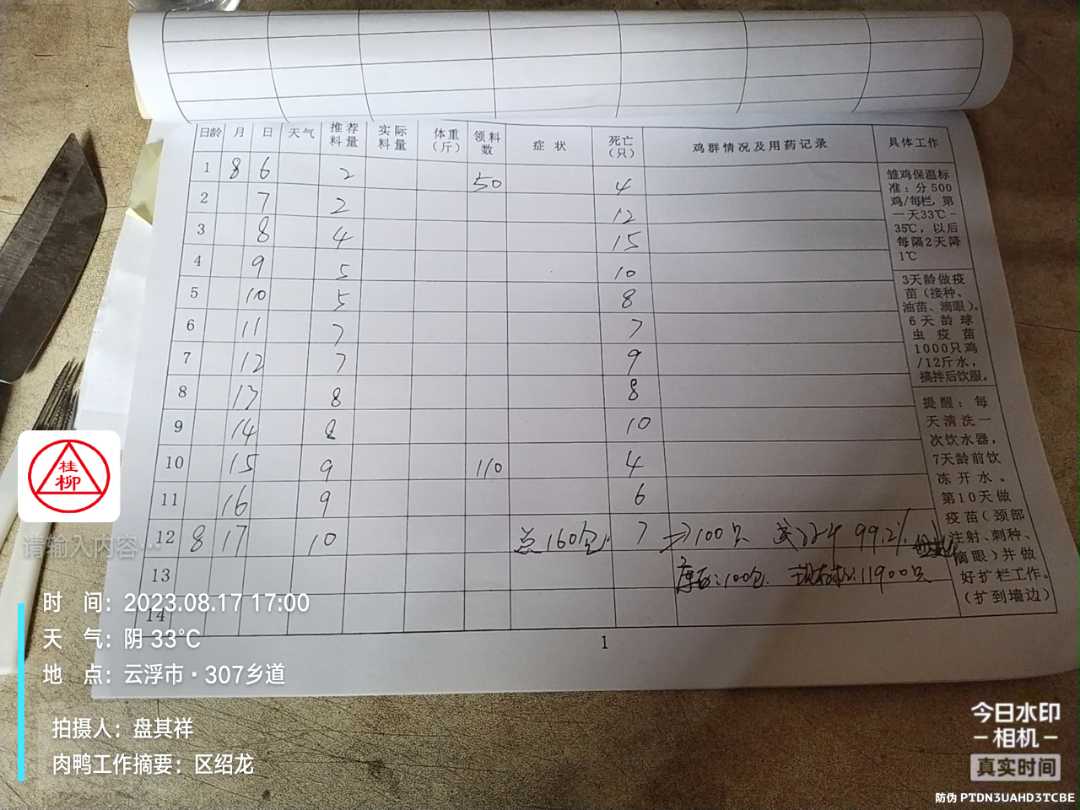 日龄 月 日 天气 推荐料量 实际料量 体重(斤) 领料数 症状 死亡(只) 鸡群情况及用药记录 具体工作
1 8 6 2 50 4
2 7 2 12
3 8 4 15
4 9 5 10
5 10 5 8
6 11 7 7
7 12 7 9
8 13 8 8
9 14 8 10
10 15 9 110 4
11 16 9 6
12 8 17 10 总160包 7 100只 99.2%
13 库存:100包 11900只
14
雏鸡保温标
准:分500
鸡/每栏,第
一天33℃-
35℃,以后
每隔2天降
1℃
3天龄做疫
苗(接种、
油苗、滴眼)。
6天龄球
虫疫苗
1000只鸡
/12斤水,
搞拌后饮服。
提醒:每
天清洗一
次饮水器,
7天龄前饮
冻开水。
第10天做
疫苗(颈部
注射、刺种、
滴眼)并做
好扩栏工作。
(扩到墙边)
1
桂
柳
请输入内容…
时间:2023.08.17 17:00
天气:阴 33℃
地点:云浮市·307乡道
拍摄人:盘其祥
肉鸭工作摘要:区绍龙
今日水印
-相机-
真实时间
防伪 PTDN3UAHD3TCBE